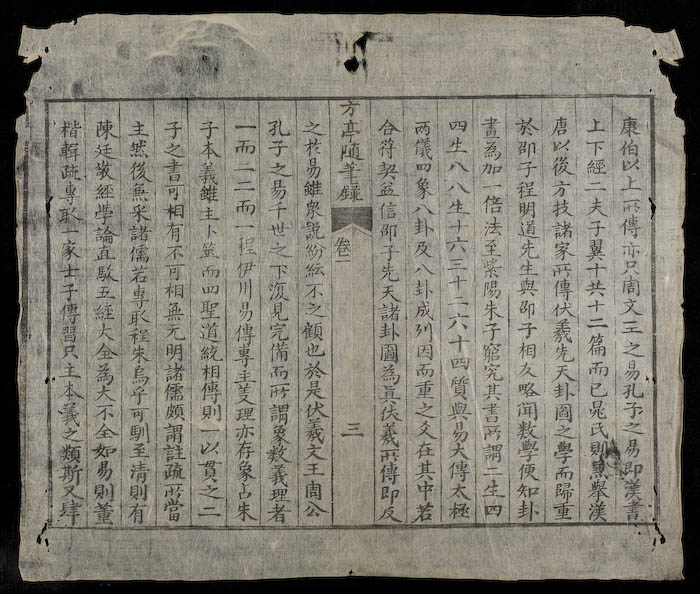 康伯以上所傳亦只周文王之易孔子之易即漢書
上下經二夫子翼十共十二篇而已晁氏則兼舉漢
唐以後方技諸家所傳伏羲先天卦圖之學而歸重
於邵子程明道先生與邵子相友略聞数學便知卦
畫為加一倍法至紫陽朱子窮究其書所謂二生四
四生八八生十六三十二六十四質與易大傳太極
两儀四象八卦及八卦成列因而重之爻在其中若
合符契益信邵子先天諸卦圖為眞伏羲所傳即反
方亭隨筆錄 卷一 三
之於易雖衆說紛紜不之顧也於是伏羲文王周公
孔子之易千世之下復見完備而所謂象数義理者
一而二二而一程伊川易傳專主義理亦存象占朱
子本義雖主卜筮而四聖道統相傳則一以貫之二
子之書可相有不可相無元明諸儒頗謂註疏所當
主然後兼采諸儒若專取程朱烏乎可馴至清則有
陳廷敬經學論直駁五經大全為大不全如易則董
楷輯疏專取一家士子傳習只主本義之類斯又肆